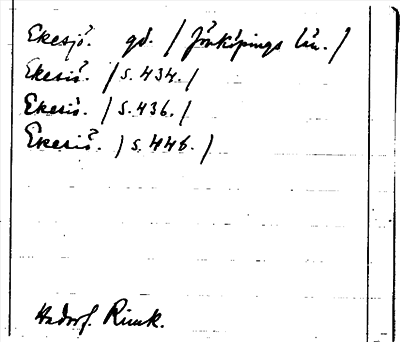 Ekesjö. gd. / Jönköpings län. /
Ekesiö. / s. 434. /
Ekesiö. / s. 436. /
Ekesiö. / s. 446. /
Hadorf. Rimk.